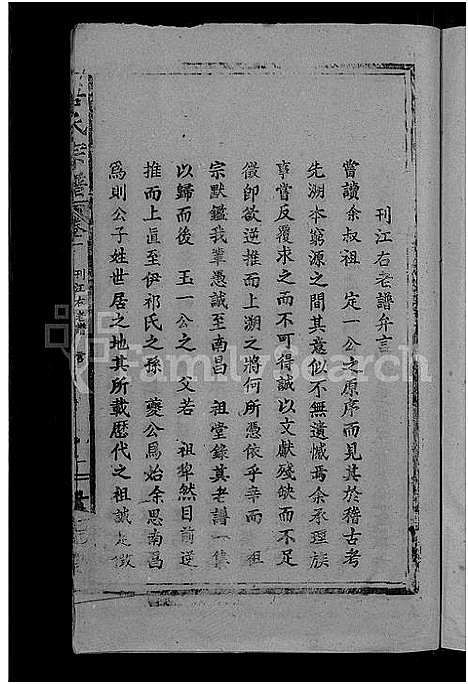 刊江右老譜弁言
嘗讀余叔祖 定一公之原序而見其於稽古考
先溯本窮源之間其意似不無遺憾焉余承理族
事嘗反覆求之而不可得誠以文獻殘缺而不足
徵即欲逆推而上溯之將何所憑依乎幸而 祖
宗默鑑我輩愚誠至南昌 祖堂錄其老譜一集
以歸而後 玉一公之父若 祖犂然目前逆
推而上直至伊祁氏之孫 夔公為始余思南昌
為則公子姓世居之地其所載歷代之祖誠足徵
氏宗譜
卷一
刊江右老譜
FamilySearch